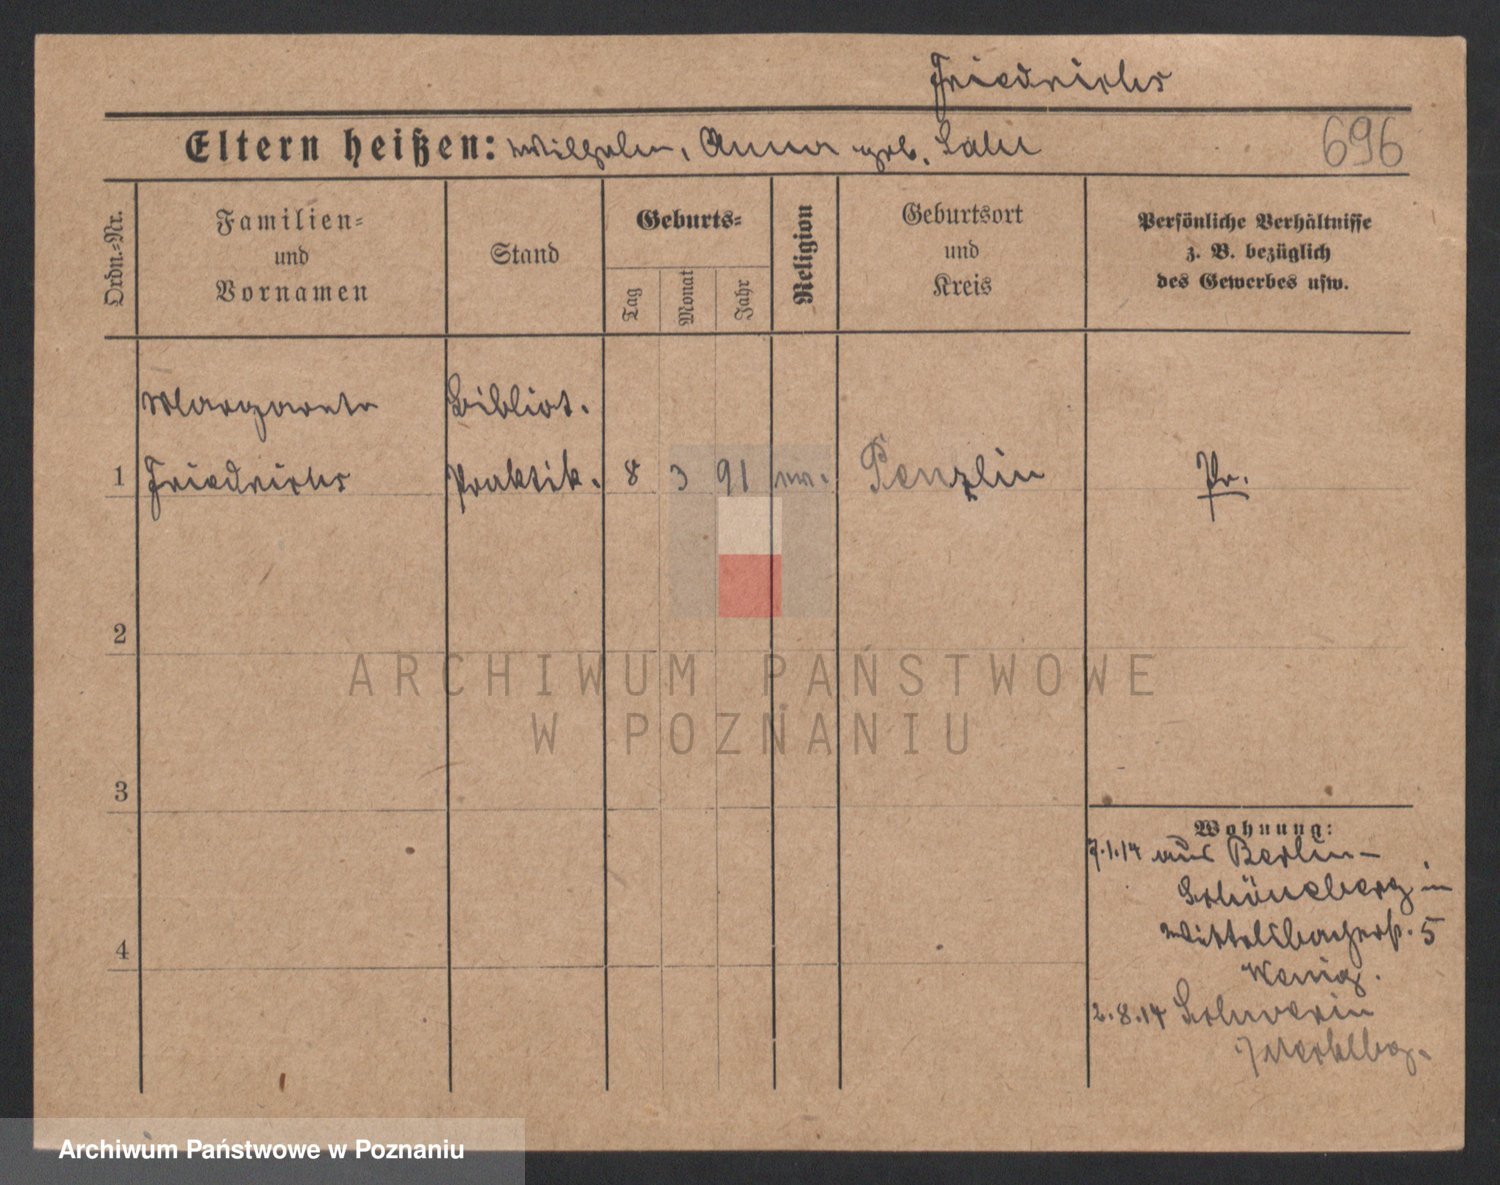 Friedrichs
Eltern heißen: Wilhelm, Anna geb.
696
Ordn.=Nr.
Familien=
und
Vornamen
Stand
Geburts=
Tag
Monat
Jahr
Religion
Geburtsort
und
Kreis
Persönliche Verhältnisse
z. B. bezüglich
des Gewerbes usw.
Margarete Bibliot.
1 Friedrichs Praktik. 8 3 91 Penzlin Pr.
2
3
4
Wohnung:
7.1.14 aus Berlin-
Schöneberg in
Wittelsbacherst. 5
2.8.14 Schwerin
Mecklbg.
ARCHIWUM PAŃSTWOWE
W POZNANIU
Archiwum Państwowe w Poznaniu